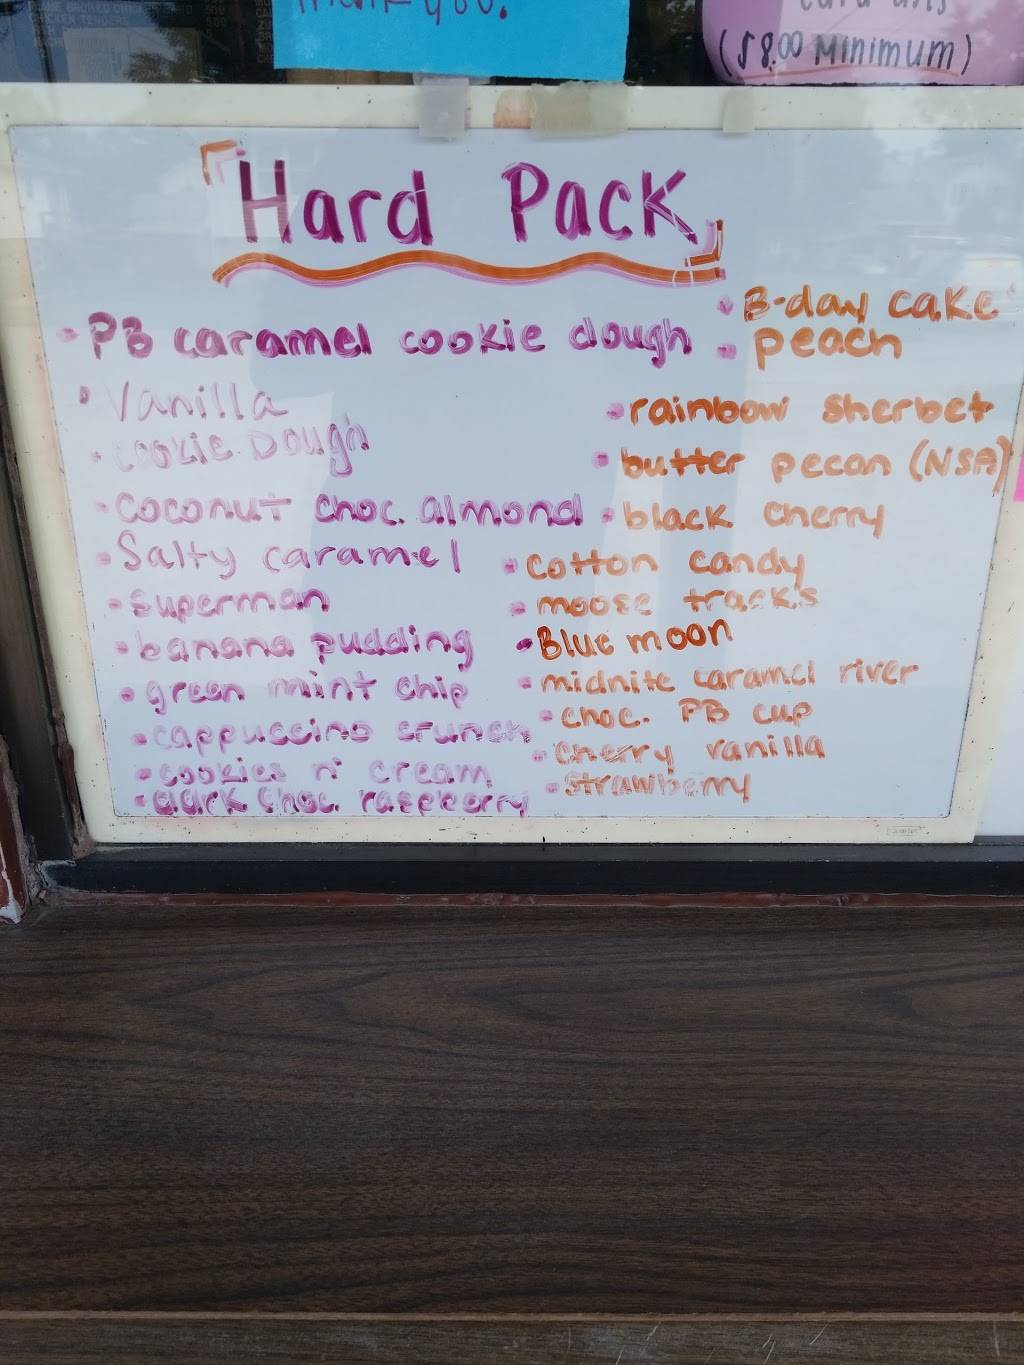 CHICKEN TENDERS
Thank you.
($8.00 MINIMUM)
Hard Pack
• PB caramel cookie dough
• Vanilla
• cookie Dough
• Coconut choc. almond
• Salty caramel
• Superman
• banana pudding
• green mint chip
• cappuccino crunch
• cookies n' cream
• dark choc. raspberry
• B-day cake
• peach
• rainbow sherbet
• butter pecan (NSA)
• black cherry
• cotton candy
• moose tracks
• Blue moon
• midnite caramel river
• choc. PB cup
• cherry vanilla
• strawberry